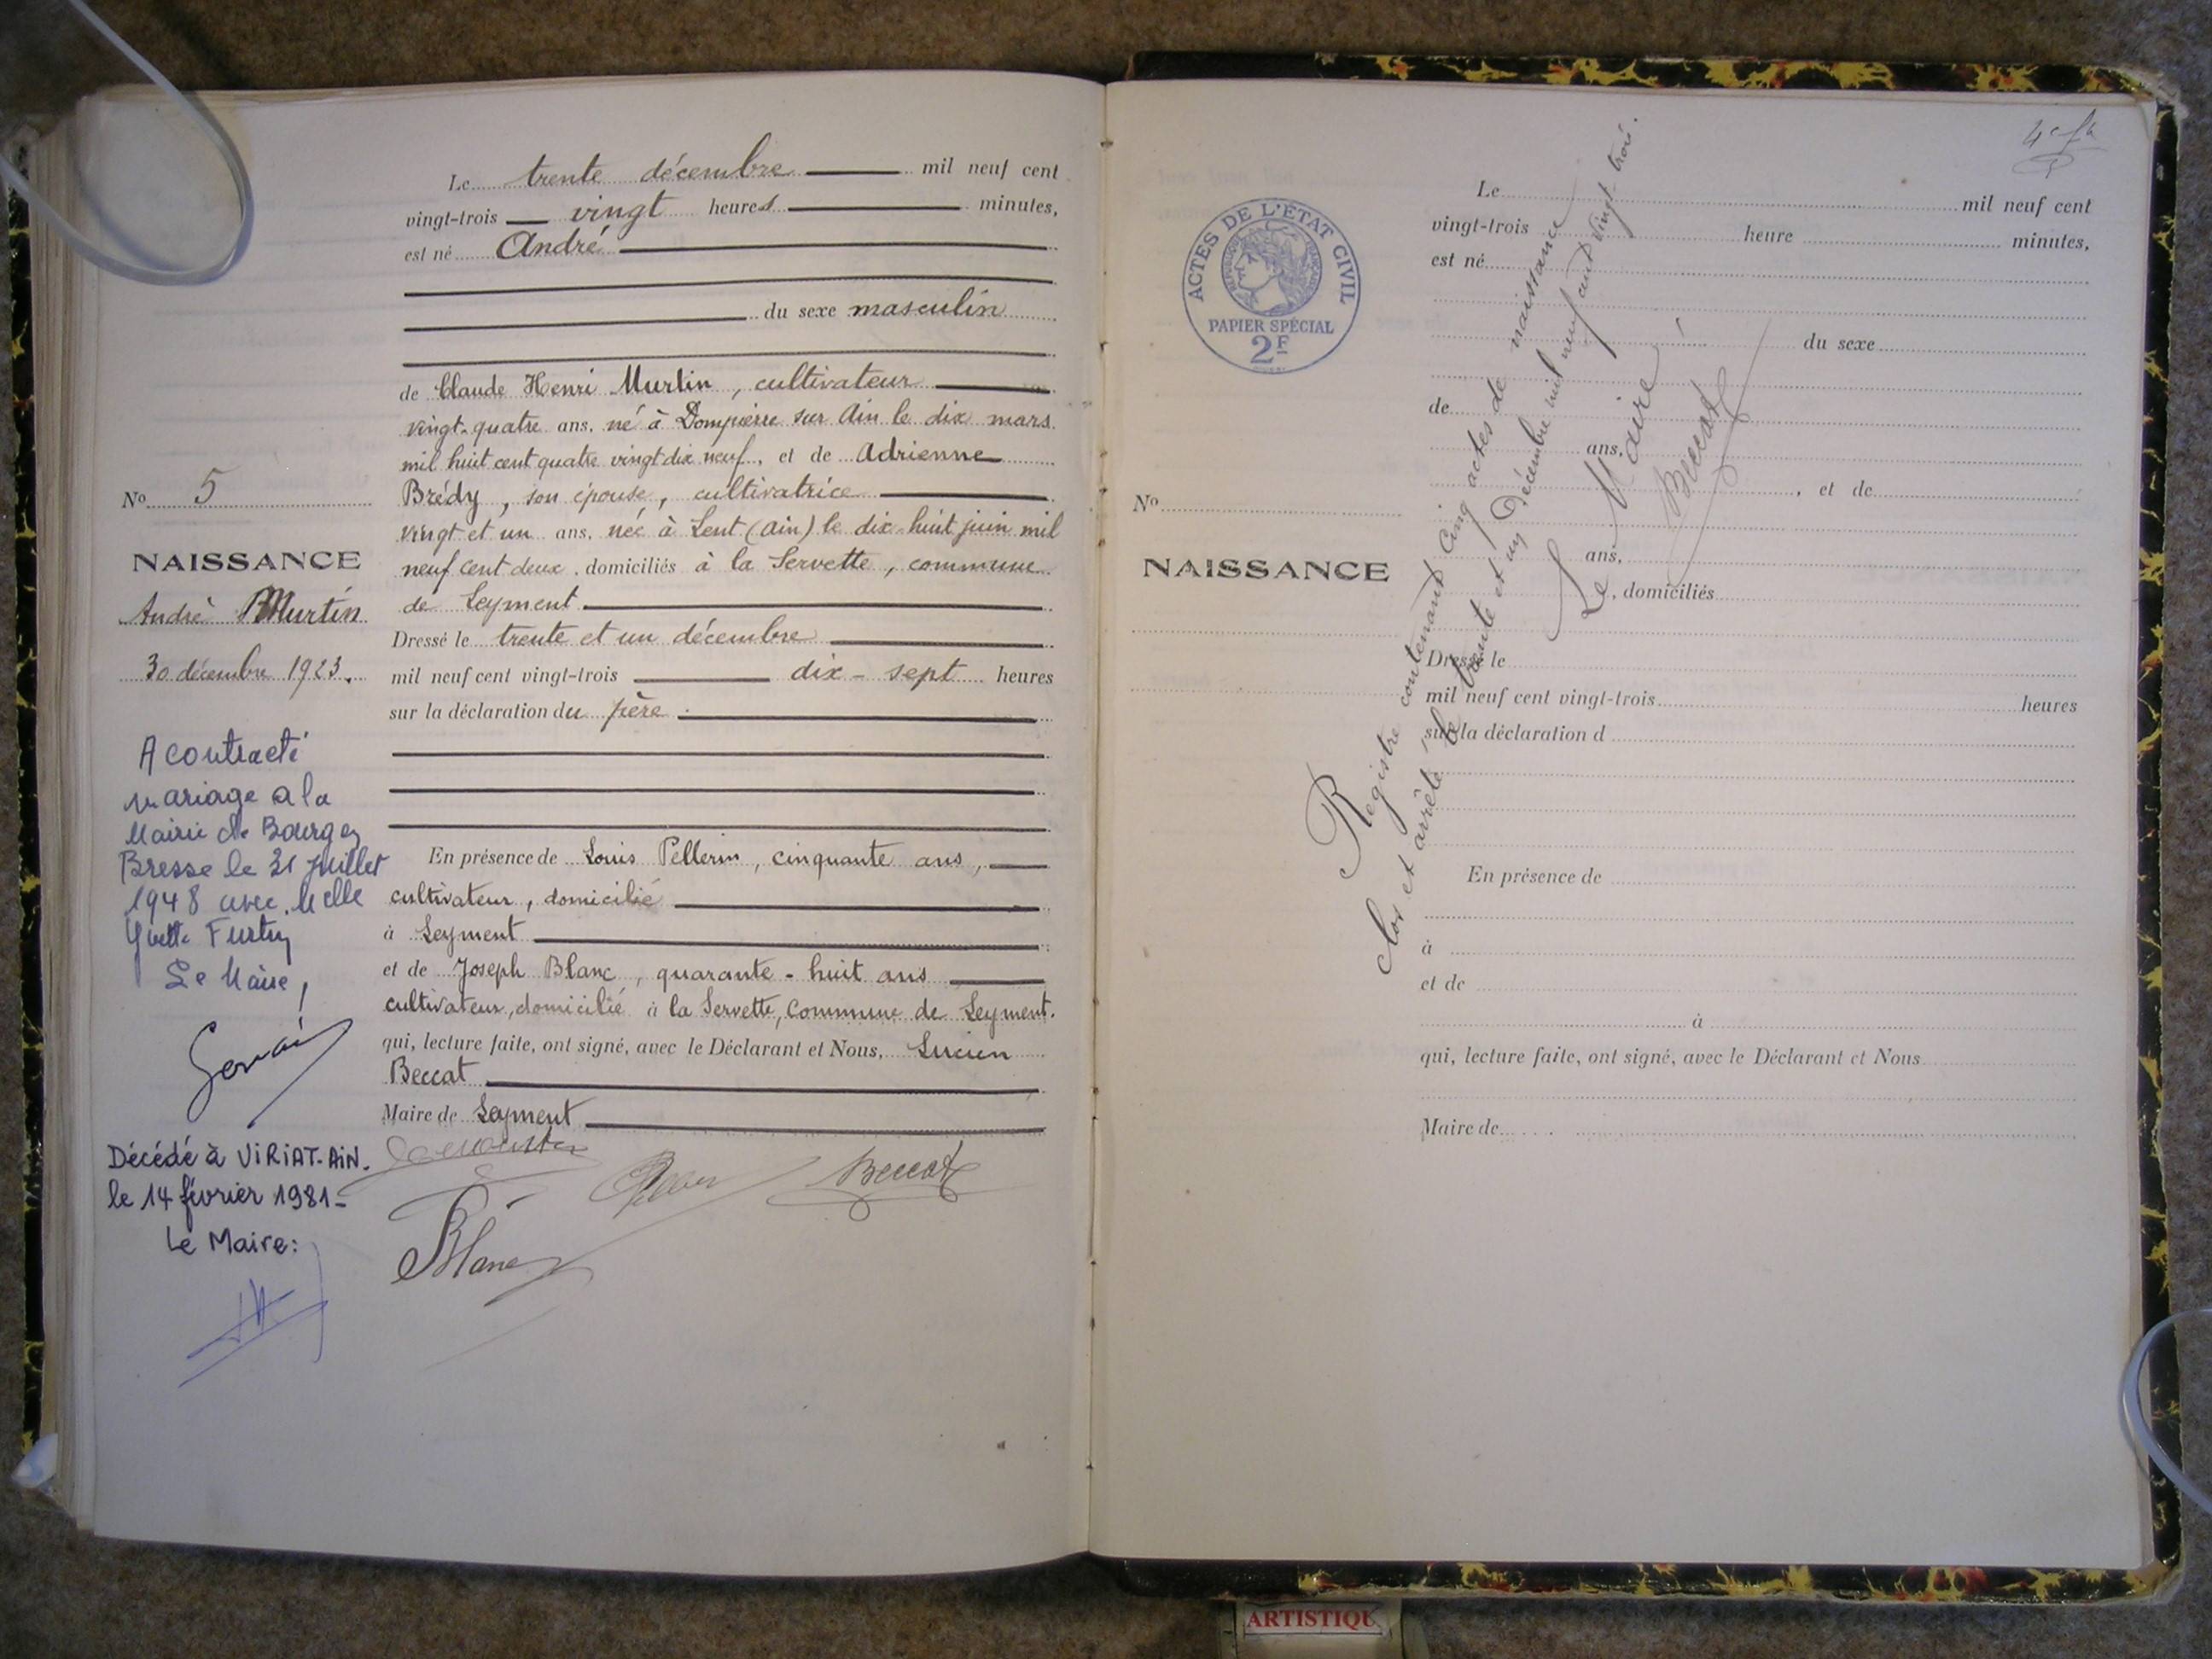 Le trente décembre mil neuf cent
vingt-trois vingt heures minutes,
est né André
du sexe masculin
de Claude Henri Murtin, cultivateur
vingt-quatre ans, né à Dompierre sur Ain le dix mars
mil huit cent quatre vingt dix neuf, et de Adrienne
Brédy, son épouse, cultivatrice
vingt et un ans, née à Lent (Ain) le dix-huit juin mil
neuf cent deux, domiciliés à la Servette, commune
de Leyment
Dressé le trente et un décembre
mil neuf cent vingt-trois dix-sept heures
sur la déclaration du père.
En présence de Louis Pellerin, cinquante ans,
cultivateur, domicilié
à Leyment
et de Joseph Blanc, quarante-huit ans
cultivateur, domicilié à la Servette, Commune de Leyment.
qui, lecture faite, ont signé, avec le Déclarant et Nous, Lucien
Beccat
Maire de Leyment
Beccat
Blanc
No 5
NAISSANCE
André Murtin
30 décembre 1923.
A contracté
mariage a la
Mairie de Bourg en
Bresse le 31 juillet
1948 avec Melle
Yvette
Le Maire,
Décédé à VIRIAT-AIN.
le 14 février 1981-
Le Maire:
ACTES DE L'ÉTAT CIVIL
RÉPUBLIQUE FRANÇAISE
PAPIER SPÉCIAL
2F
Le mil neuf cent
vingt-trois heure minutes,
est né
du sexe
de
ans,
, et de
No
NAISSANCE
ans,
, domiciliés
Dressé le
mil neuf cent vingt-trois heures
sur la déclaration d
En présence de
à
et de
à
qui, lecture faite, ont signé, avec le Déclarant et Nous
Maire de
Registre contenant cinq actes de naissance
clos et arrêté le trente et un Décembre mil neuf cent vingt trois.
Le Maire
Beccat
ARTISTIQU